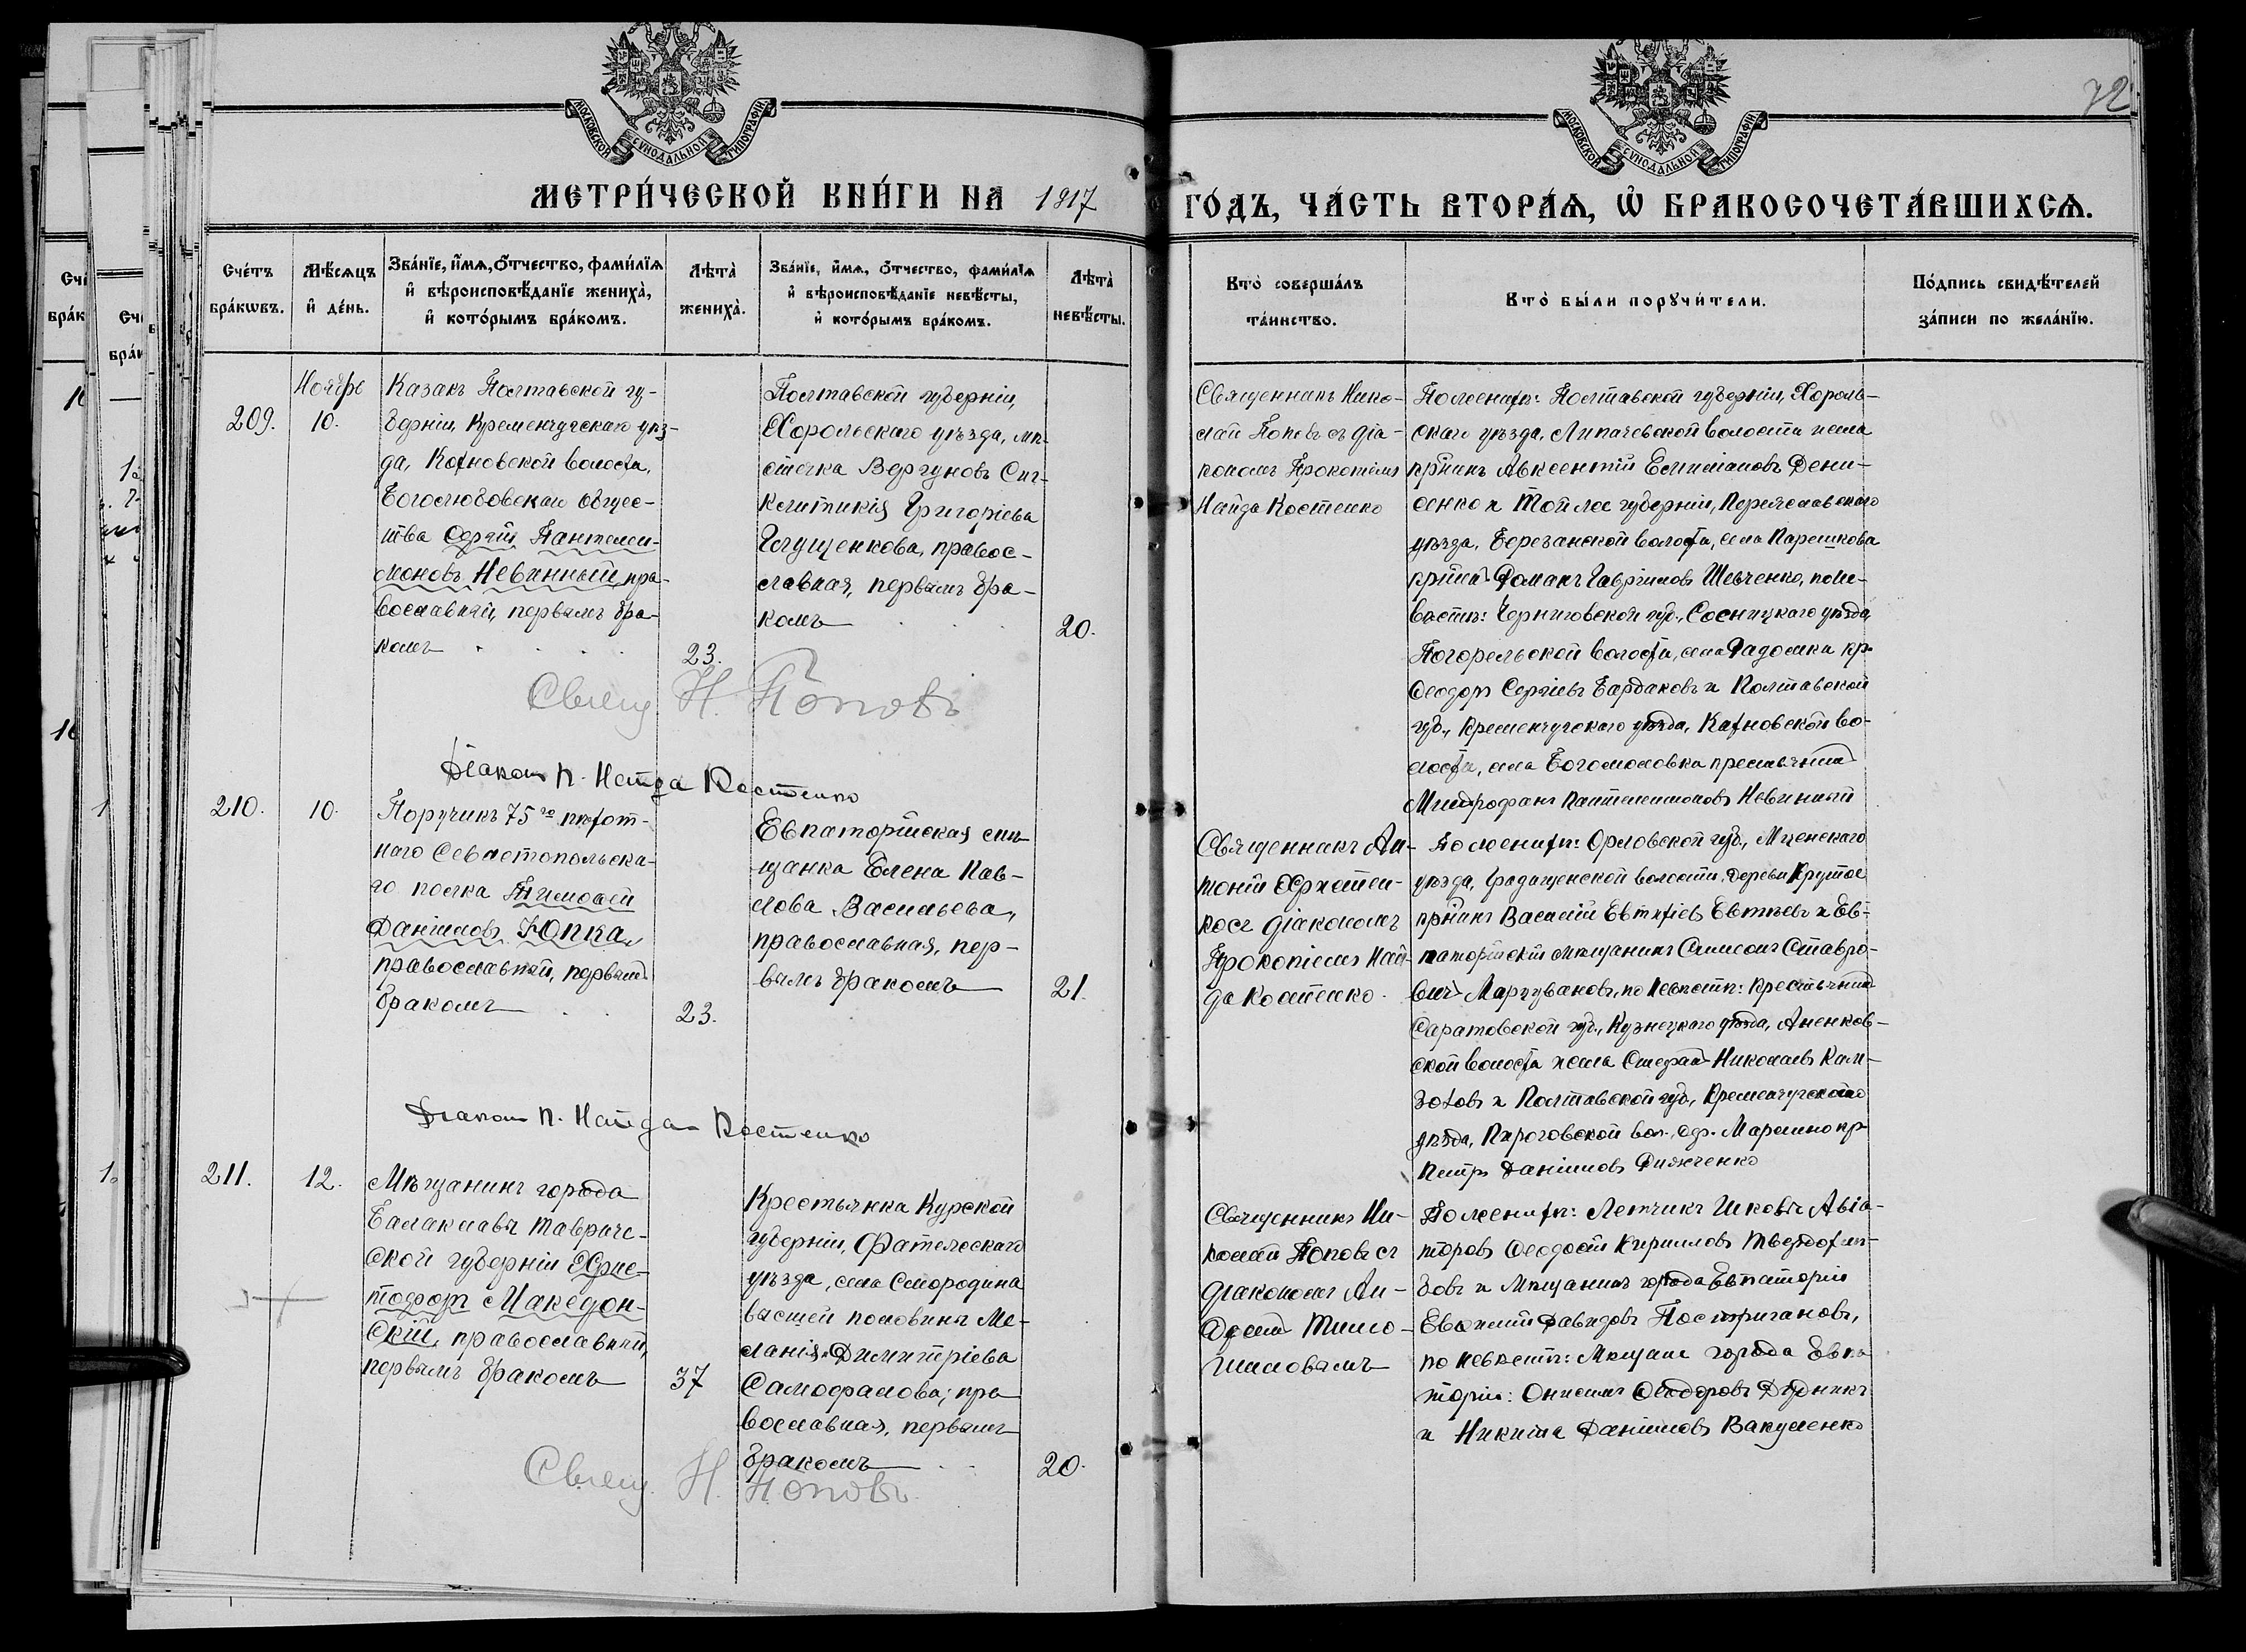 МОСКОВСКОЙ СУНОДАЛЬНОЙ ТИПОГРАФІИ
МОСКОВСКОЙ СУНОДАЛЬНОЙ ТИПОГРАФІИ
72
МЕТРИ́ЧЕСКОЙ КНИ́ГИ НА 1917
ГО́ДЪ, ЧА́СТЬ ВТОРА́Ѧ, Ѽ БРАКОСОЧЕТА́ВШИХСѦ.
Сче́тъ бра́кѡвъ.
Мѣ́сяцъ и́ де́нь.
Зва́нїе, и́мѧ, ѻ́тчество, фами́лїѧ
и́ вѣроисповѣ́данїе жениха̀,
и́ кото́рымъ бра́комъ.
Лѣта̀ жениха̀.
Зва́нїе, и́мѧ, ѻ́тчество, фами́лїѧ
и́ вѣроисповѣ́данїе невѣ́сты,
и́ кото́рымъ бра́комъ.
Лѣта̀ невѣ́сты.
Кто̀ соверша́лъ
та́инство.
Кто̀ бы́ли порꙋчи́тели.
По́дпись свидѣ́телей
за́писи по жела́нїю.
209.
Ноябрь
10.
Казакъ Полтавской гу-
берніи, Кременчугскаго уѣз-
да, Кагновской волости,
Боголюбовскаго общес-
тва Сергій Пантелеи-
моновъ Невинный, пра-
вославный, первымъ бра-
комъ
23.
Полтавской губерніи,
Хорольскаго уѣзда, мѣ-
стечка Вергуновъ Син-
клитикія Григоріева
Глущенкова, правос-
лавная, первымъ бра-
комъ
20.
Священникъ Нико-
лай Поповъ съ діа-
кономъ Прокопіемъ
Найда Костенко
По женихѣ: Полтавской губерніи, Хороль-
скаго уѣзда, волости
Авксентій Дени-
сенко и Той же губерніи, Переяславскаго
уѣзда, Березанской волости, села
Романъ Гавріиловъ Шевченко, по не-
вѣстѣ: Черниговской губ., Сосницкаго уѣзда,
Погорельской волости, села кр.
Феодоръ Сергіевъ Бардаковъ и Полтавской
губ., Кременчугскаго уѣзда, Кагновской во-
лости, села Богомоловка
Митрофанъ Пантелеимоновъ Невинный
Свящ. Н. Поповъ
Діаконъ П. Найда Костенко
210.
10.
Поручикъ 75го пѣхот-
наго Севастопольска-
го полка Тимофей
Даніиловъ Юпка,
православный, первымъ
бракомъ
23.
Евпаторійская мѣ-
щанка Елена Пав-
лова Васильева,
православная, пер-
вымъ бракомъ
21.
Священникъ Ан-
тоній
діакономъ
Прокопіемъ Най-
да Костенко.
По женихѣ: Орловской губ., Мценскаго
уѣзда, волости, дерев. Крутое
Василій Евтѣевъ и Ев-
паторійскій мѣщанинъ Симеонъ Ставро-
вичъ, по невѣстѣ: крестьянинъ
Саратовской губ., Кузнецкаго уѣзда, Аненков-
ской волости и села Стефанъ Николаевъ
и Полтавской губ., Кременчугскаго
уѣзда, Пироговской вол., кр.
Петръ Даніиловъ
Діаконъ П. Найда Костенко
211.
12.
Мѣщанинъ города
Балаклавы Тавриче-
ской губерніи Хрис-
тофоръ Македон-
скій, православный,
первымъ бракомъ
37
Крестьянка Курской
губерніи, Фатежскаго
уѣзда, села Смородина
высшей половины Ме-
ланія Димитріева
Самофалова, пра-
вославная, первымъ
бракомъ
20.
Священникъ Ни-
колай Поповъ съ
діакономъ Ан-
дреемъ Тимо-
шиловымъ
По женихѣ: Летчикъ Школы Авіа-
торовъ Феодосій Кирилловъ Твердохлѣ-
бовъ и Мѣщанинъ города Евпаторіи
Евфимій Давидовъ
по невѣстѣ: Мѣщане города Евпа-
торіи: Онисимъ Феодоровъ Дудникъ
и Никита Даніиловъ Вакуленко
Свящ. Н. Поповъ